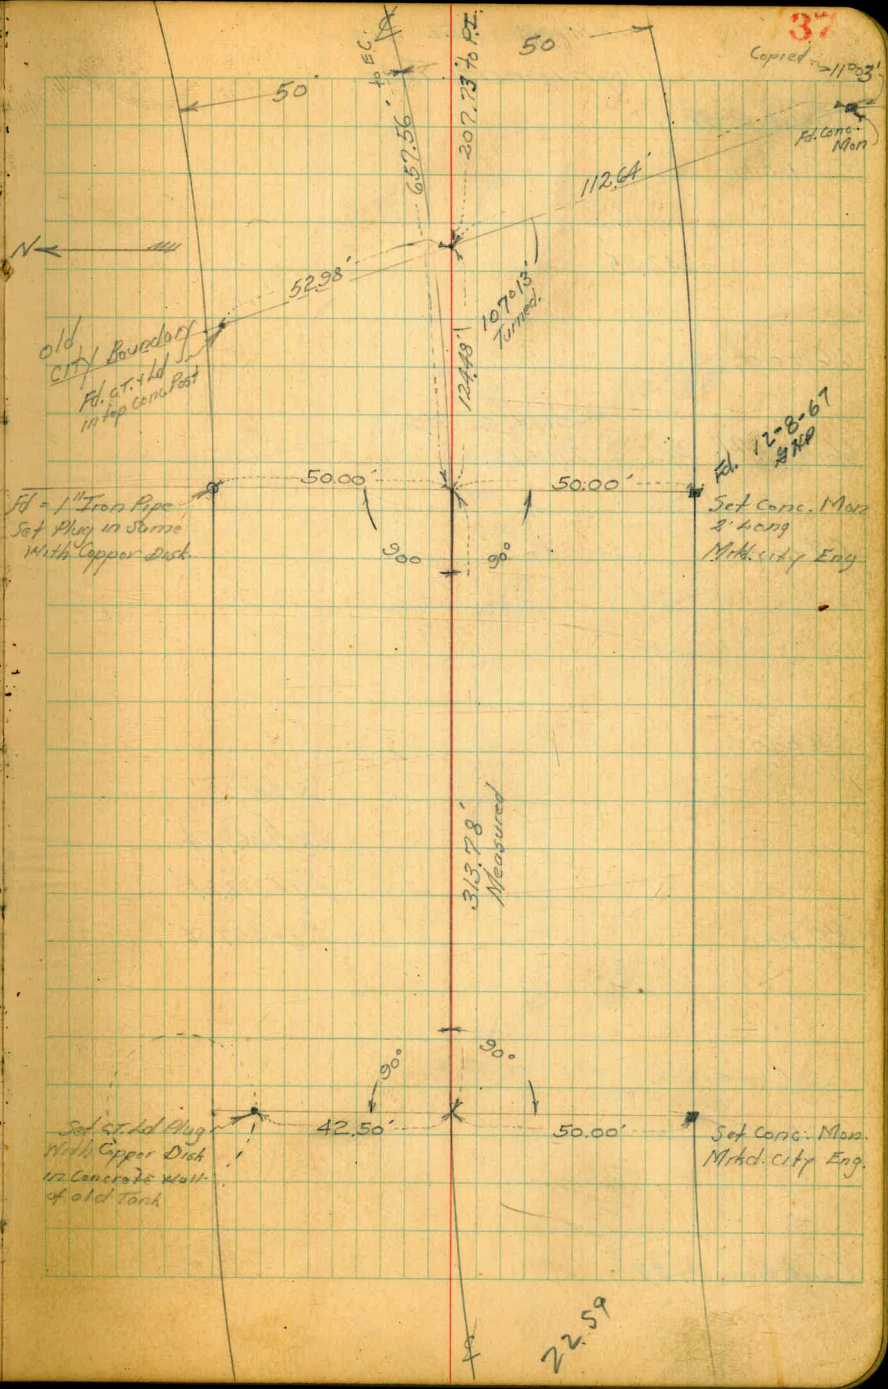 37
Copied 11°03'
to E.C.
207.73 to P.I.
50
50'
657.56'
Fd. Conc.
Mon
112.64'
N
52.98'
107°13'
Turned.
Old
City Boundary
Fd. c.T. + Ld
in top Conc Post
124.48'
Fd. 12-8-67
50.00'
50.00'
Fd = 1" Iron Pipe
Set Plug in Same
With Copper Disk.
Set Conc. Mon
2' Long
Mrkd. City Eng
90°
90°
313.78'
Measured
90°
90°
42.50'
50.00'
Set c.T. Ld Plug
With Copper Disk
in Concrete wall
of old Tank
Set Conc. Mon.
Mrkd. City Eng.
22.59